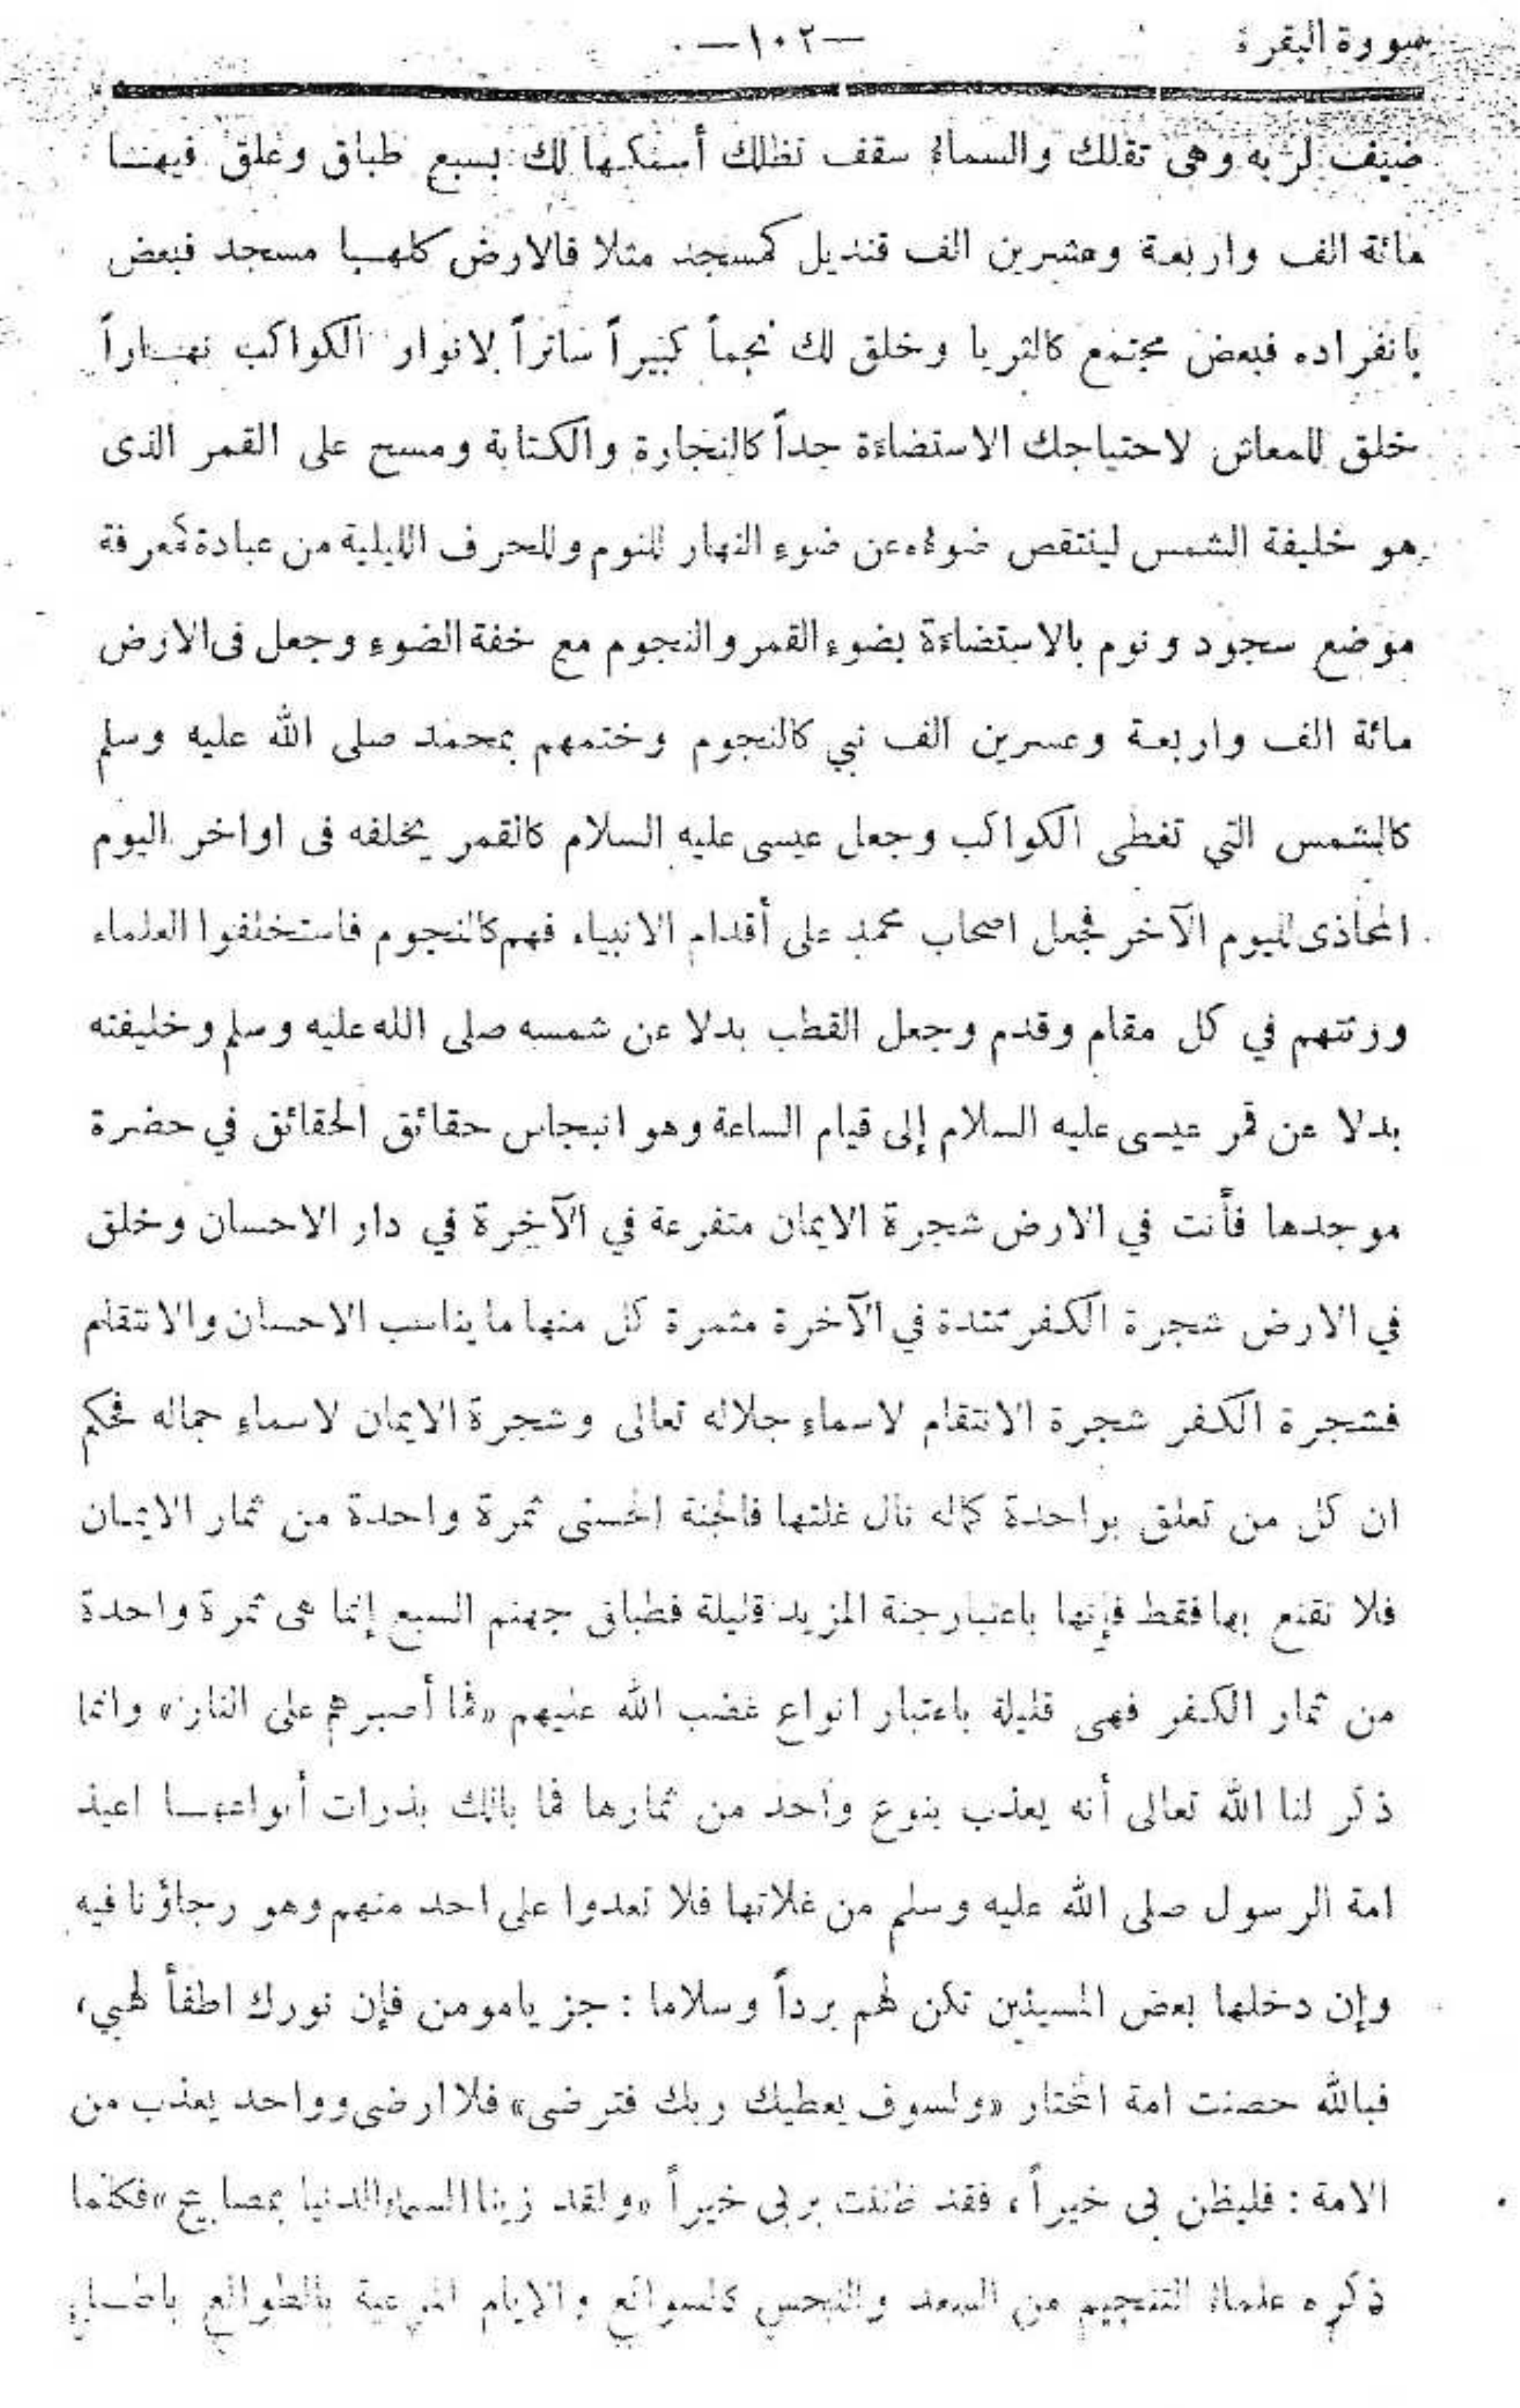 سورة البقرة
—١٠٢—
ضيف لربه وهى تقلك والسماء سقف تظلك أسمكها لك بسبع طباق وعلق فيهـا
مائة الف واربعة وعشرين الف قنديل كمسجد مثلا فالارض كلهـا مسجد فبعض
بانفراده فبعض مجتمع كالثريا وخلق لك نجماً كبيراً ساتراً لانوار الكواكب نهـاراً
خلق للمعاش لاحتياجك الاستضاءة جداً كالنجارة والكتابة ومسح على القمر الذى
هو خليفة الشمس لينتقص ضوءه عن ضوء النهار للنوم وللحرف الليلية من عبادة كمعرفة
موضع سجود ونوم بالاستضاءة بضوء القمر والنجوم مع خفة الضوء وجعل فى الارض
مائة الف واربعة وعسرين الف نبي كالنجوم وختمهم بمحمد صلى الله عليه وسلم
كالشمس التي تغطى الكواكب وجعل عيسى عليه السلام كالقمر يخلفه فى اواخر اليوم
المحاذى لليوم الآخر فجعل اصحاب محمد على أقدام الانبياء فهم كالنجوم فاستخلفوا العلماء
ورثتهم في كل مقام وقدم وجعل القطب بدلا عن شمسه صلى الله عليه وسلم وخليفته
بدلا عن قمر عيسى عليه السلام إلى قيام الساعة وهو انبجاس حقائق الحقائق في حضرة
موجدها فأنت في الارض شجرة الايمان متفرعة في الآخرة في دار الاحسان وخلق
في الارض شجرة الكفر ممتدة في الآخرة مثمرة كل منها ما يناسب الاحسان والانتقام
فشجرة الكفر شجرة الانتقام لاسماء جلاله تعالى وشجرة الايمان لاسماء جماله فحكم
ان كل من تعلق بواحدة كماله نال غلتها فالجنة الحسنى ثمرة واحدة من ثمار الايمـان
فلا تقنع بها فقط فإنها باعتبار جنة المزيد قليلة فطباق جهنم السبع إنما هى ثمرة واحدة
من ثمار الكفر فهى قليلة باعتبار انواع غضب الله عليهم «فما أصبرهم على النار» وانما
ذكر لنا الله تعالى أنه يعذب بنوع واحد من ثمارها فما بالك بذرات أنواعهـا اعيذ
امة الرسول صلى الله عليه وسلم من غلاتها فلا تعدوا على احد منهم وهو رجاؤنا فيه
وإن دخلها بعض المسيئين تكن لهم برداً وسلاما : جز يامومن فإن نورك اطفأ لهبي،
فبالله حصنت امة المختار «ولسوف يعطيك ربك فترضى» فلا ارضى وواحد يعذب من
الامة : فليظن بى خيراً، فقد ظننت بربى خيراً «ولقد زينا السماء الدنيا بمصابيح» فكلما
ذكره علماء التنجيم من السعد والنحس كالسوائع والايام المرعية بالطوالع باطـل